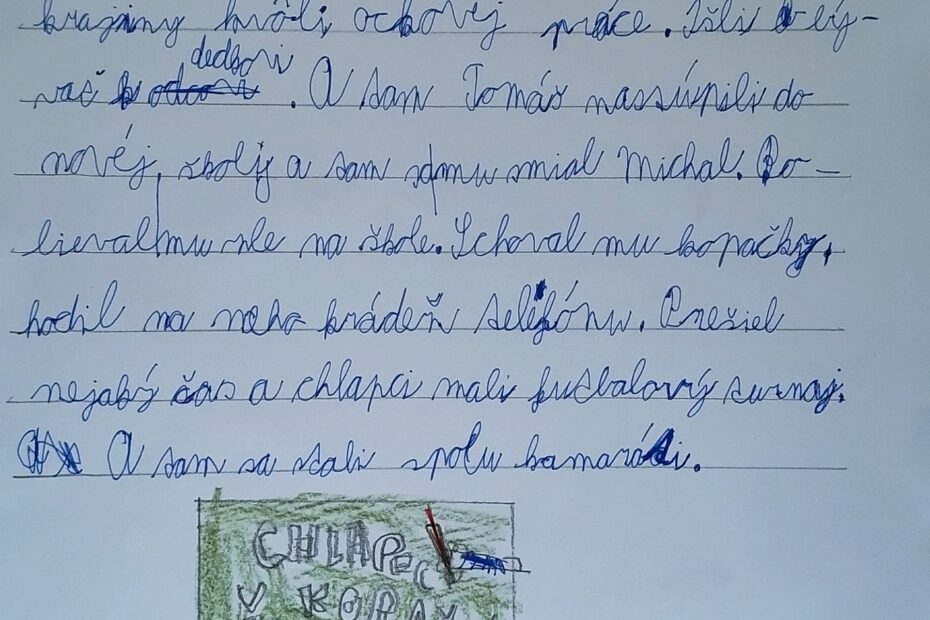 krajiny kvôli ockovej práce. Išli bý-
vať dedkovi. A tam Tomáš nastúpili do
novéj školy a tam mu smial Michal. Ro-
bieval mu zle na škole. Schoval mu kopačky,
hodil na neho krádež telefónu. Prešiel
nejaký čas a chlapci mali futbalový turnaj.
A tam sa stali spolu kamaráti.
CHLAPEC
V